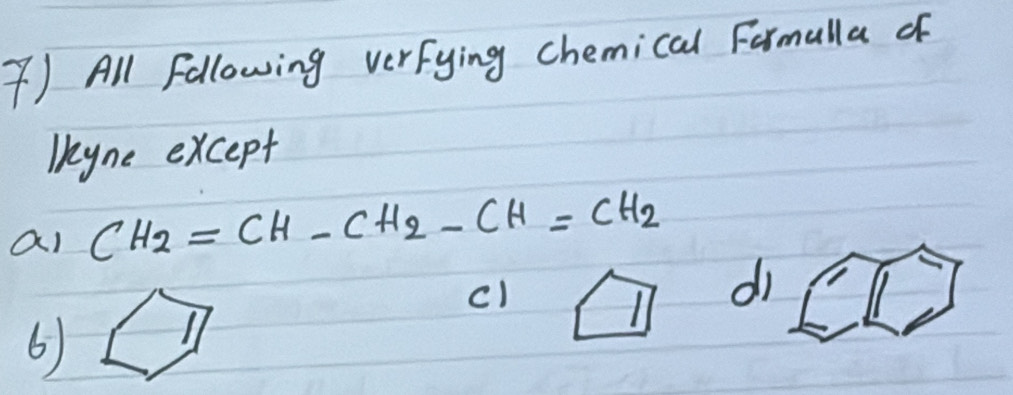 7) All Following verfying chemical Formulla of
lkyne except
a) CH2 = CH - CH2 - CH = CH2
b) c) d)